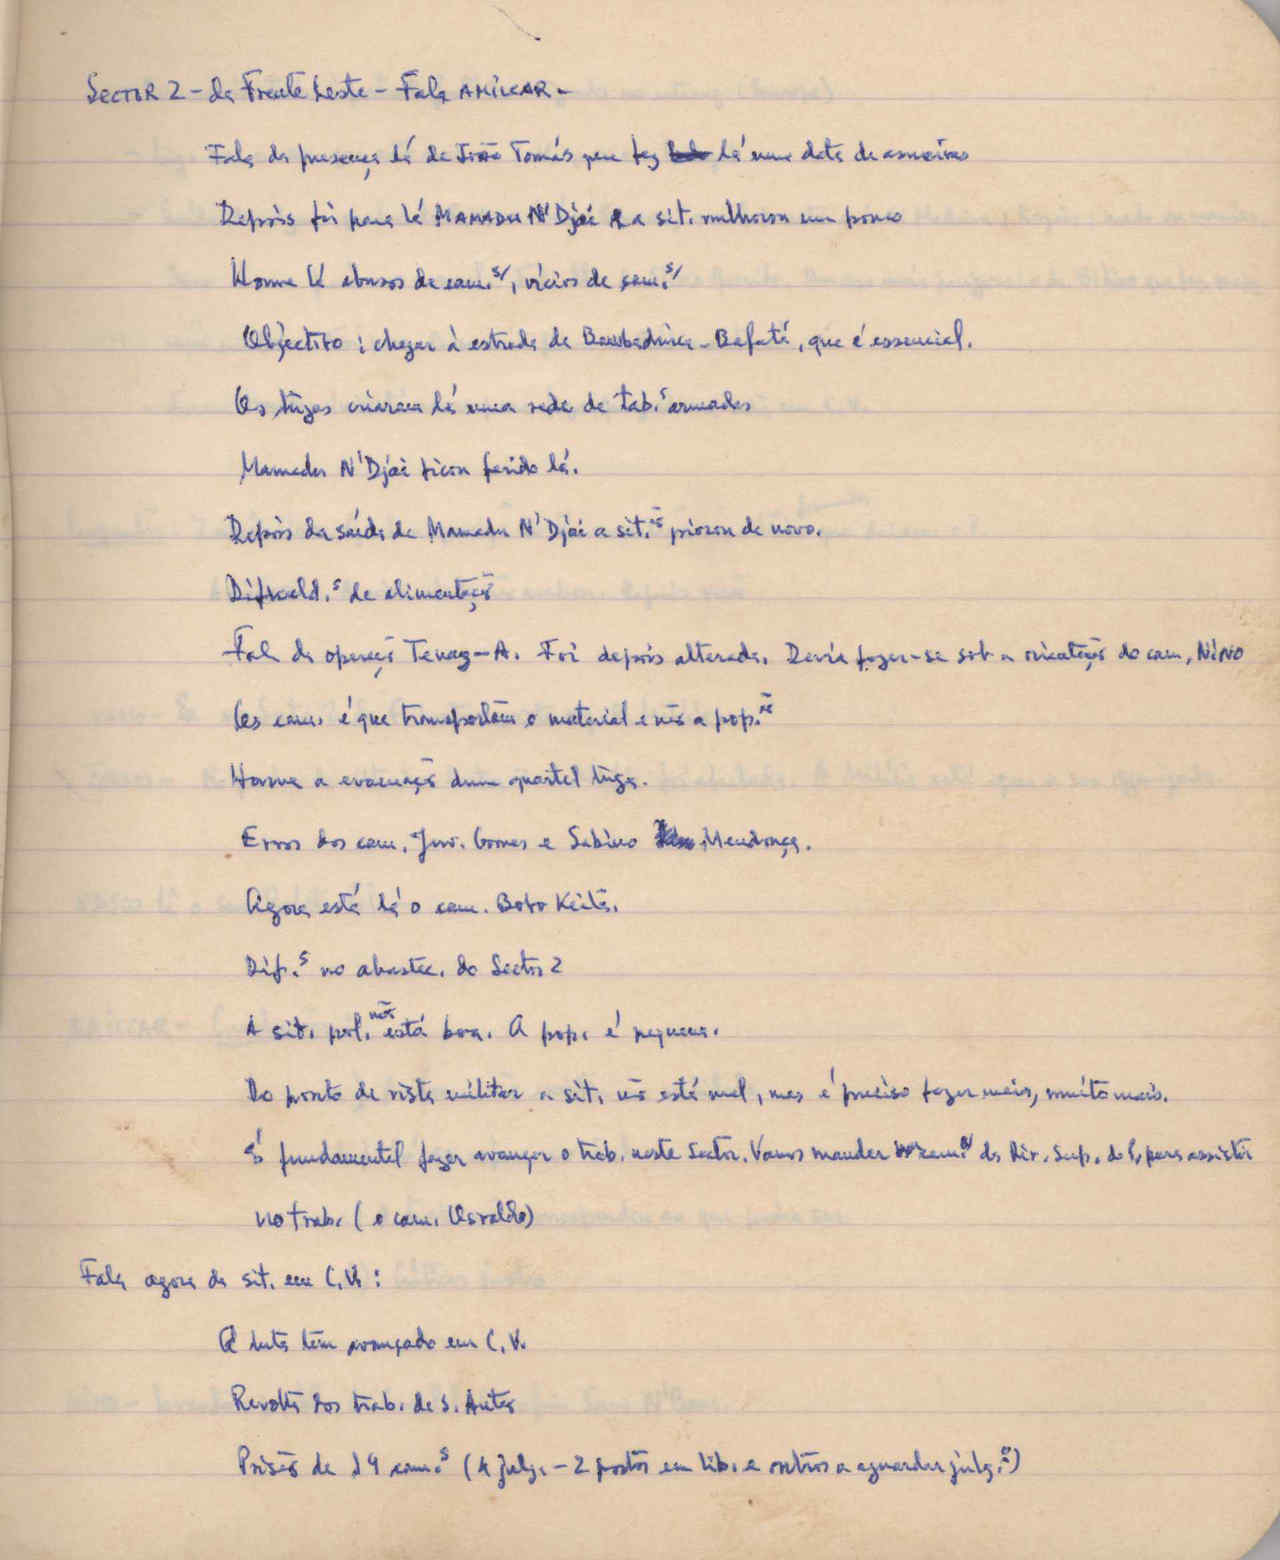 SECTOR 2 - da Frente Leste - Fala AMILCAR -
Fala da presença lá de João Tomás que fez lá uma data de asneiras
Depois foi para lá MAMADU N'Djai e a sit. melhorou um pouco
Houve lá abusos de cam.s/, vícios de cam.s/
Objectivo: chegar à estrada de Bambadinca - Bafatá, que é essencial.
Os tugas criaram lá uma rede de tab.s armadas
Mamadu N'Djai ficou ferido lá.
Depois da saída de Mamadu N'Djai a sit.ão piorou de novo.
Dificuld.s de alimentação
Fala da operação Tenaz-A. Foi depois alterada. Devia fazer-se sob a orientação do cam. NINO
Os cam. é que transportam o material e não a pop.ão
Houve a evacuação dum quartel tuga.
Erros dos cam. Juv. Gomes e Sabino Mendonça.
Agora está lá o cam. Bobo Keita.
Dif.s no abastec. do Sector 2
A sit. pol. não está boa. A pop. é pequena.
Do ponto de vista militar a sit. não está mal, mas é preciso fazer mais, muito mais.
É fundamental fazer avançar o trab. neste Sector. Vamos mandar cam. da Dir. Sup. do P. para assistir
no trab. (o cam. Osvaldo)
Fala agora da sit. em C.V.:
A luta tem avançado em C.V.
Revolta dos trab. de S. Antão
Prisão de 19 cam.s (4 julg. - 2 postos em lib. e outros a aguardar julg.o)